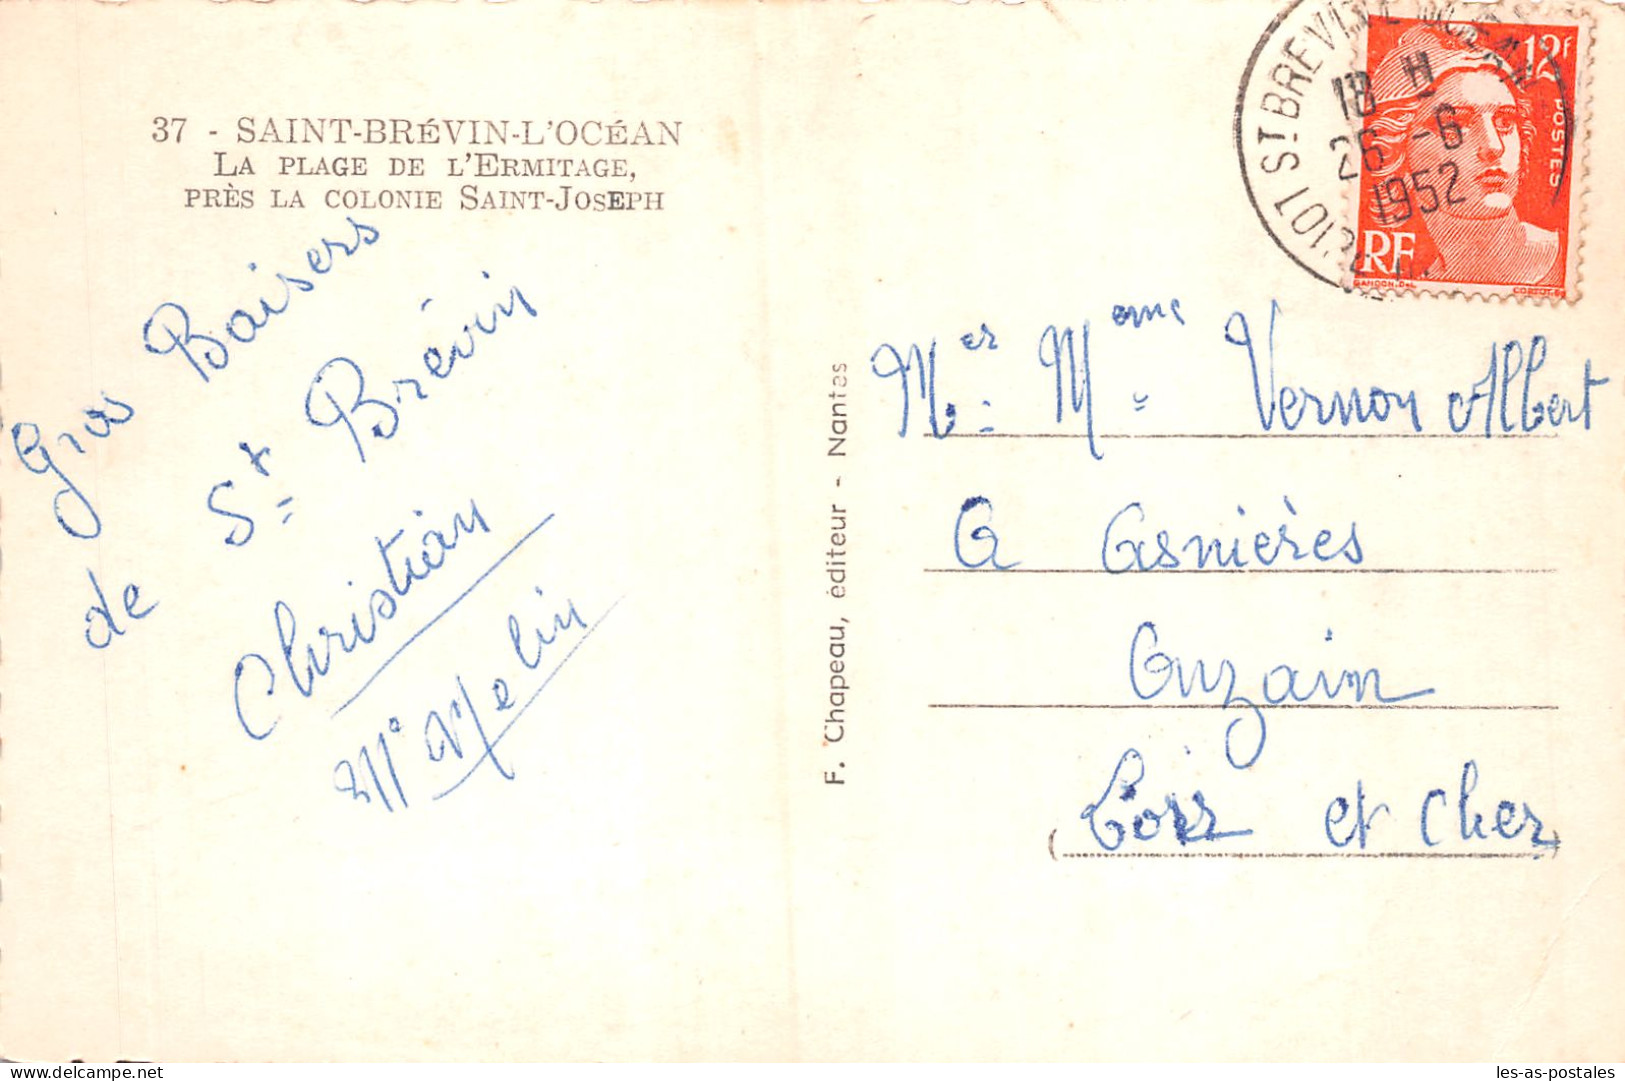 37 - SAINT-BRÉVIN-L'OCÉAN
LA PLAGE DE L'ERMITAGE,
PRÈS LA COLONIE SAINT-JOSEPH
Gros Baisers
de St Brévin
Christian
Melin
F. Chapeau, éditeur - Nantes
ST BREVIN L'OCEAN
18 H
26 -6
1952
12F
POSTES
RF
GANDON.DEL
CORTOT.SC
Mer Meme Vernon Albert
A Asnières
Onzain
Loir et Cher
les-as-postales